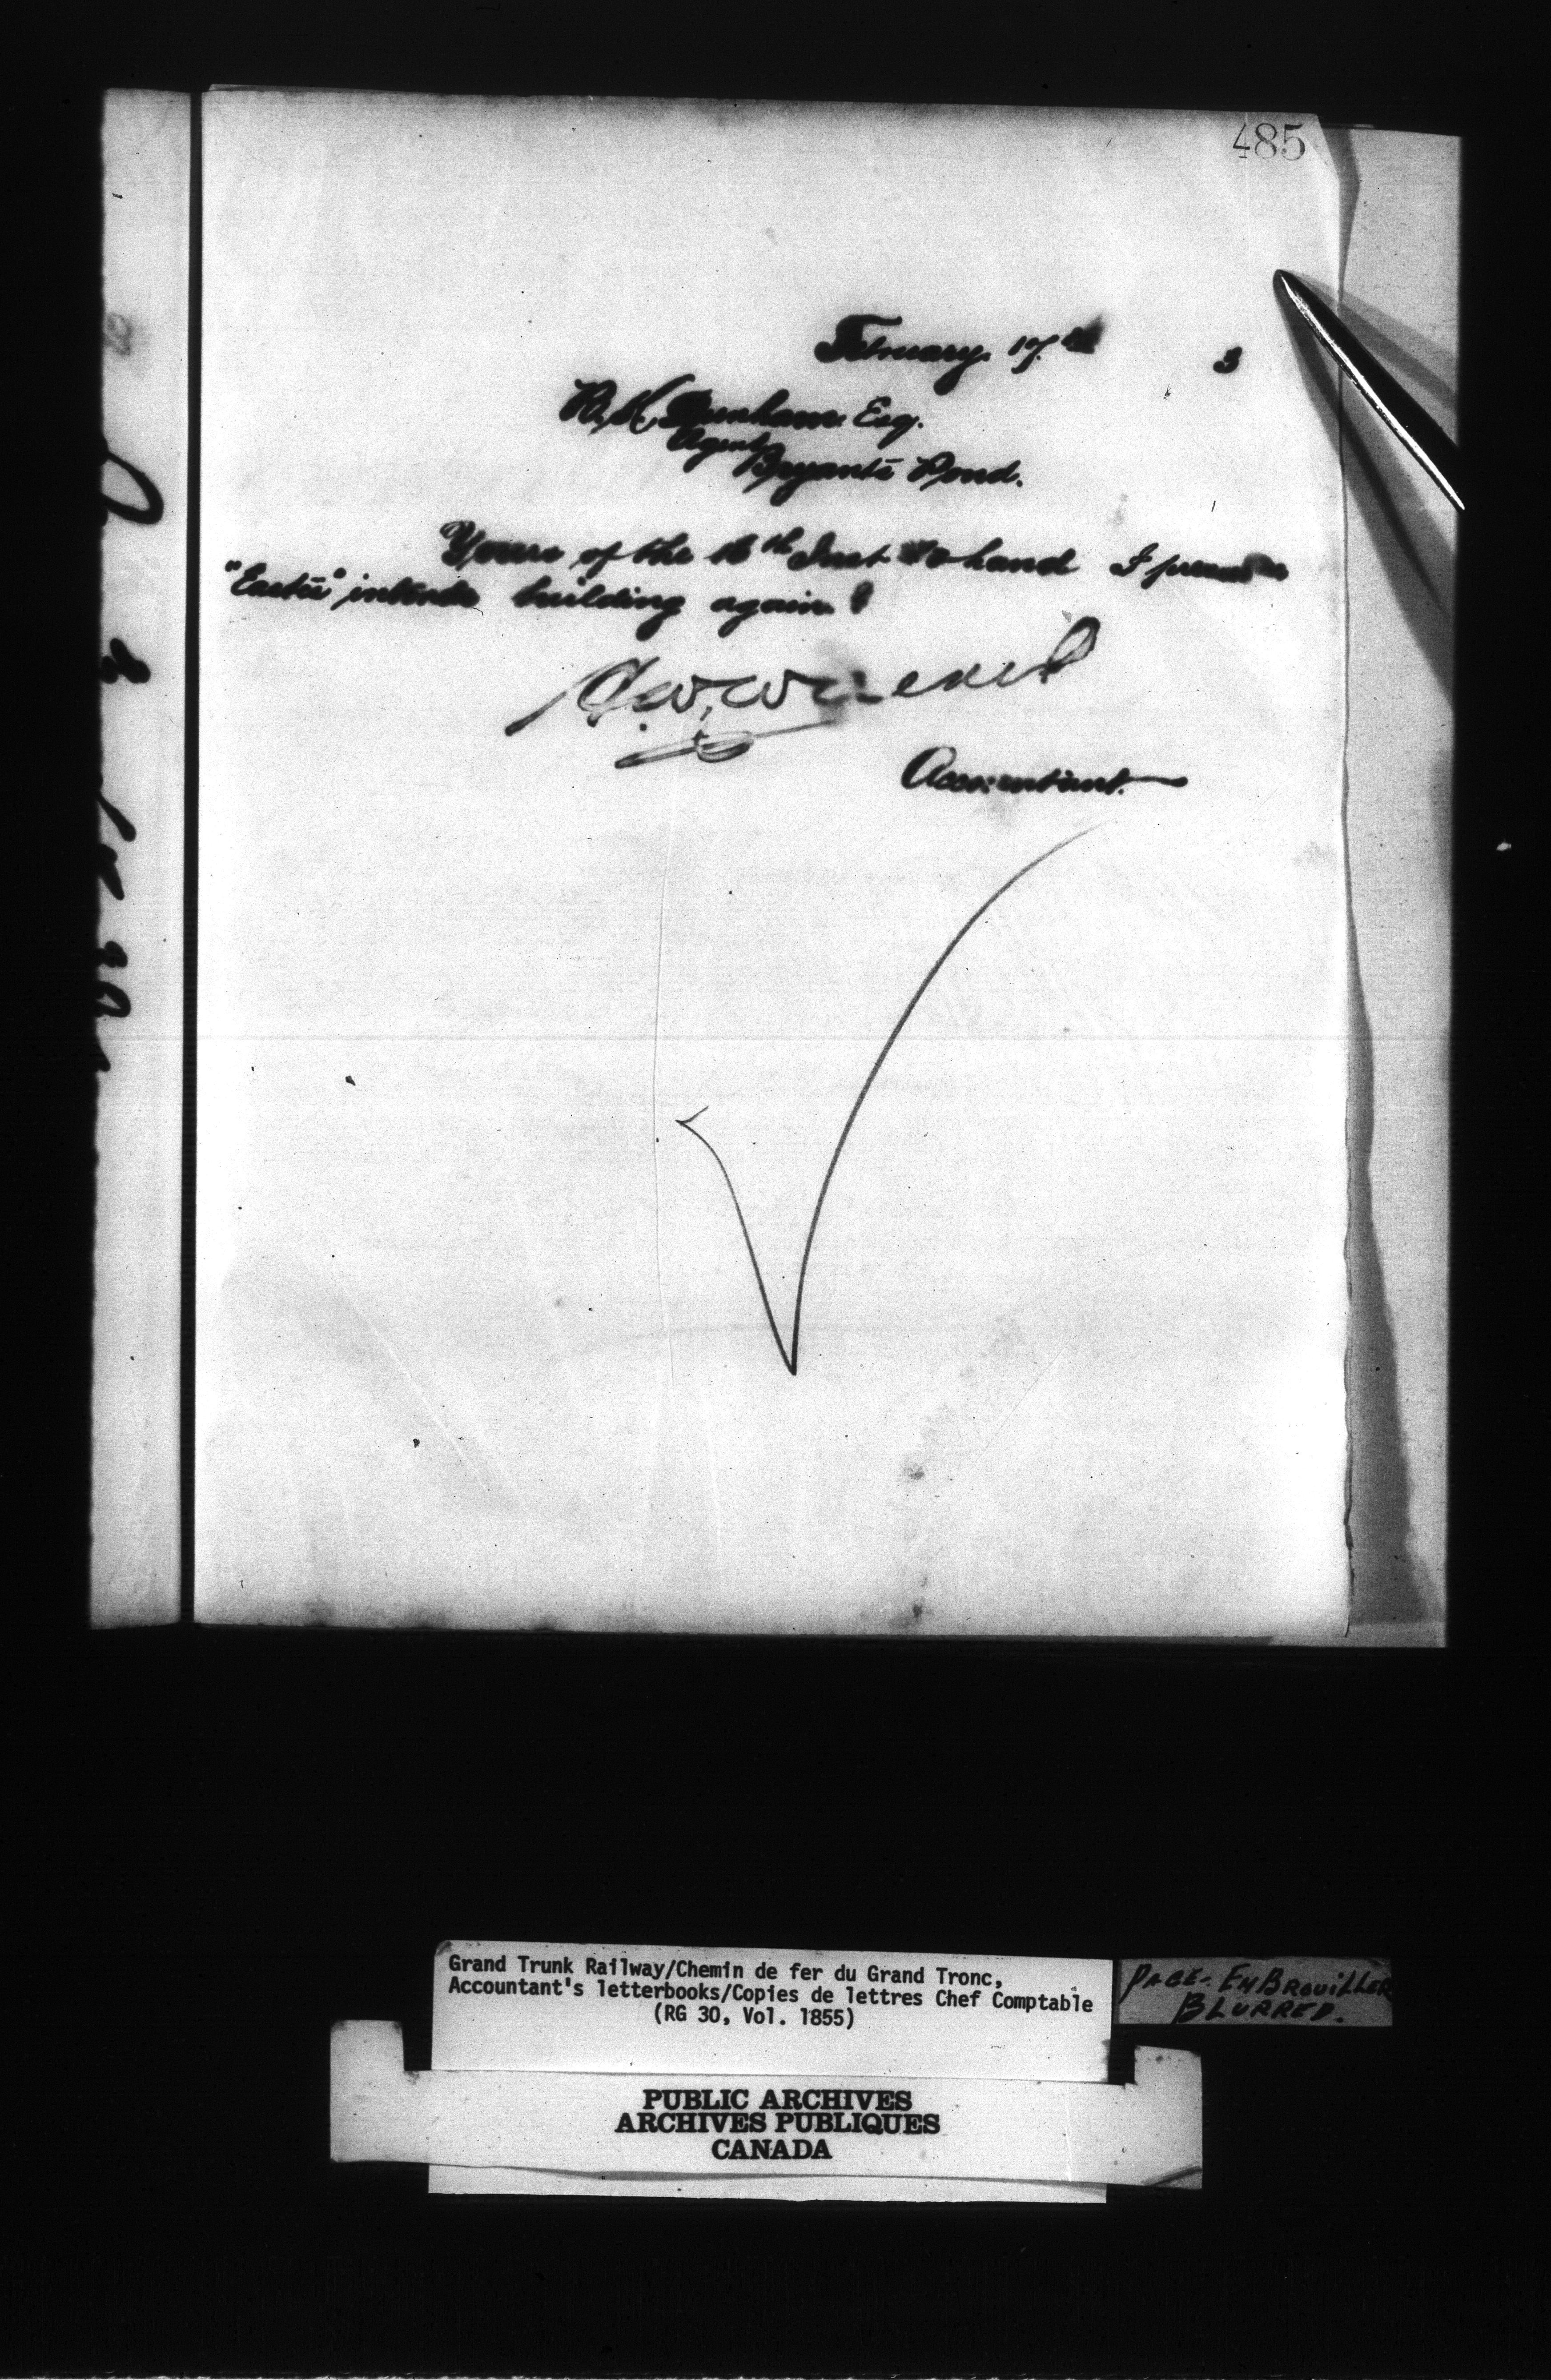 485
February 17th 3
R. K. Dunham Esq.
Agent
Bryants Pond.
Yours of the 16th Inst to hand I presume
intends building again?
Accountant.
Grand Trunk Railway/Chemin de fer du Grand Tronc,
Accountant's letterbooks/Copies de lettres Chef Comptable
(RG 30, Vol. 1855)
PAGE - EMBROUILLER
BLURRED.
PUBLIC ARCHIVES
ARCHIVES PUBLIQUES
CANADA